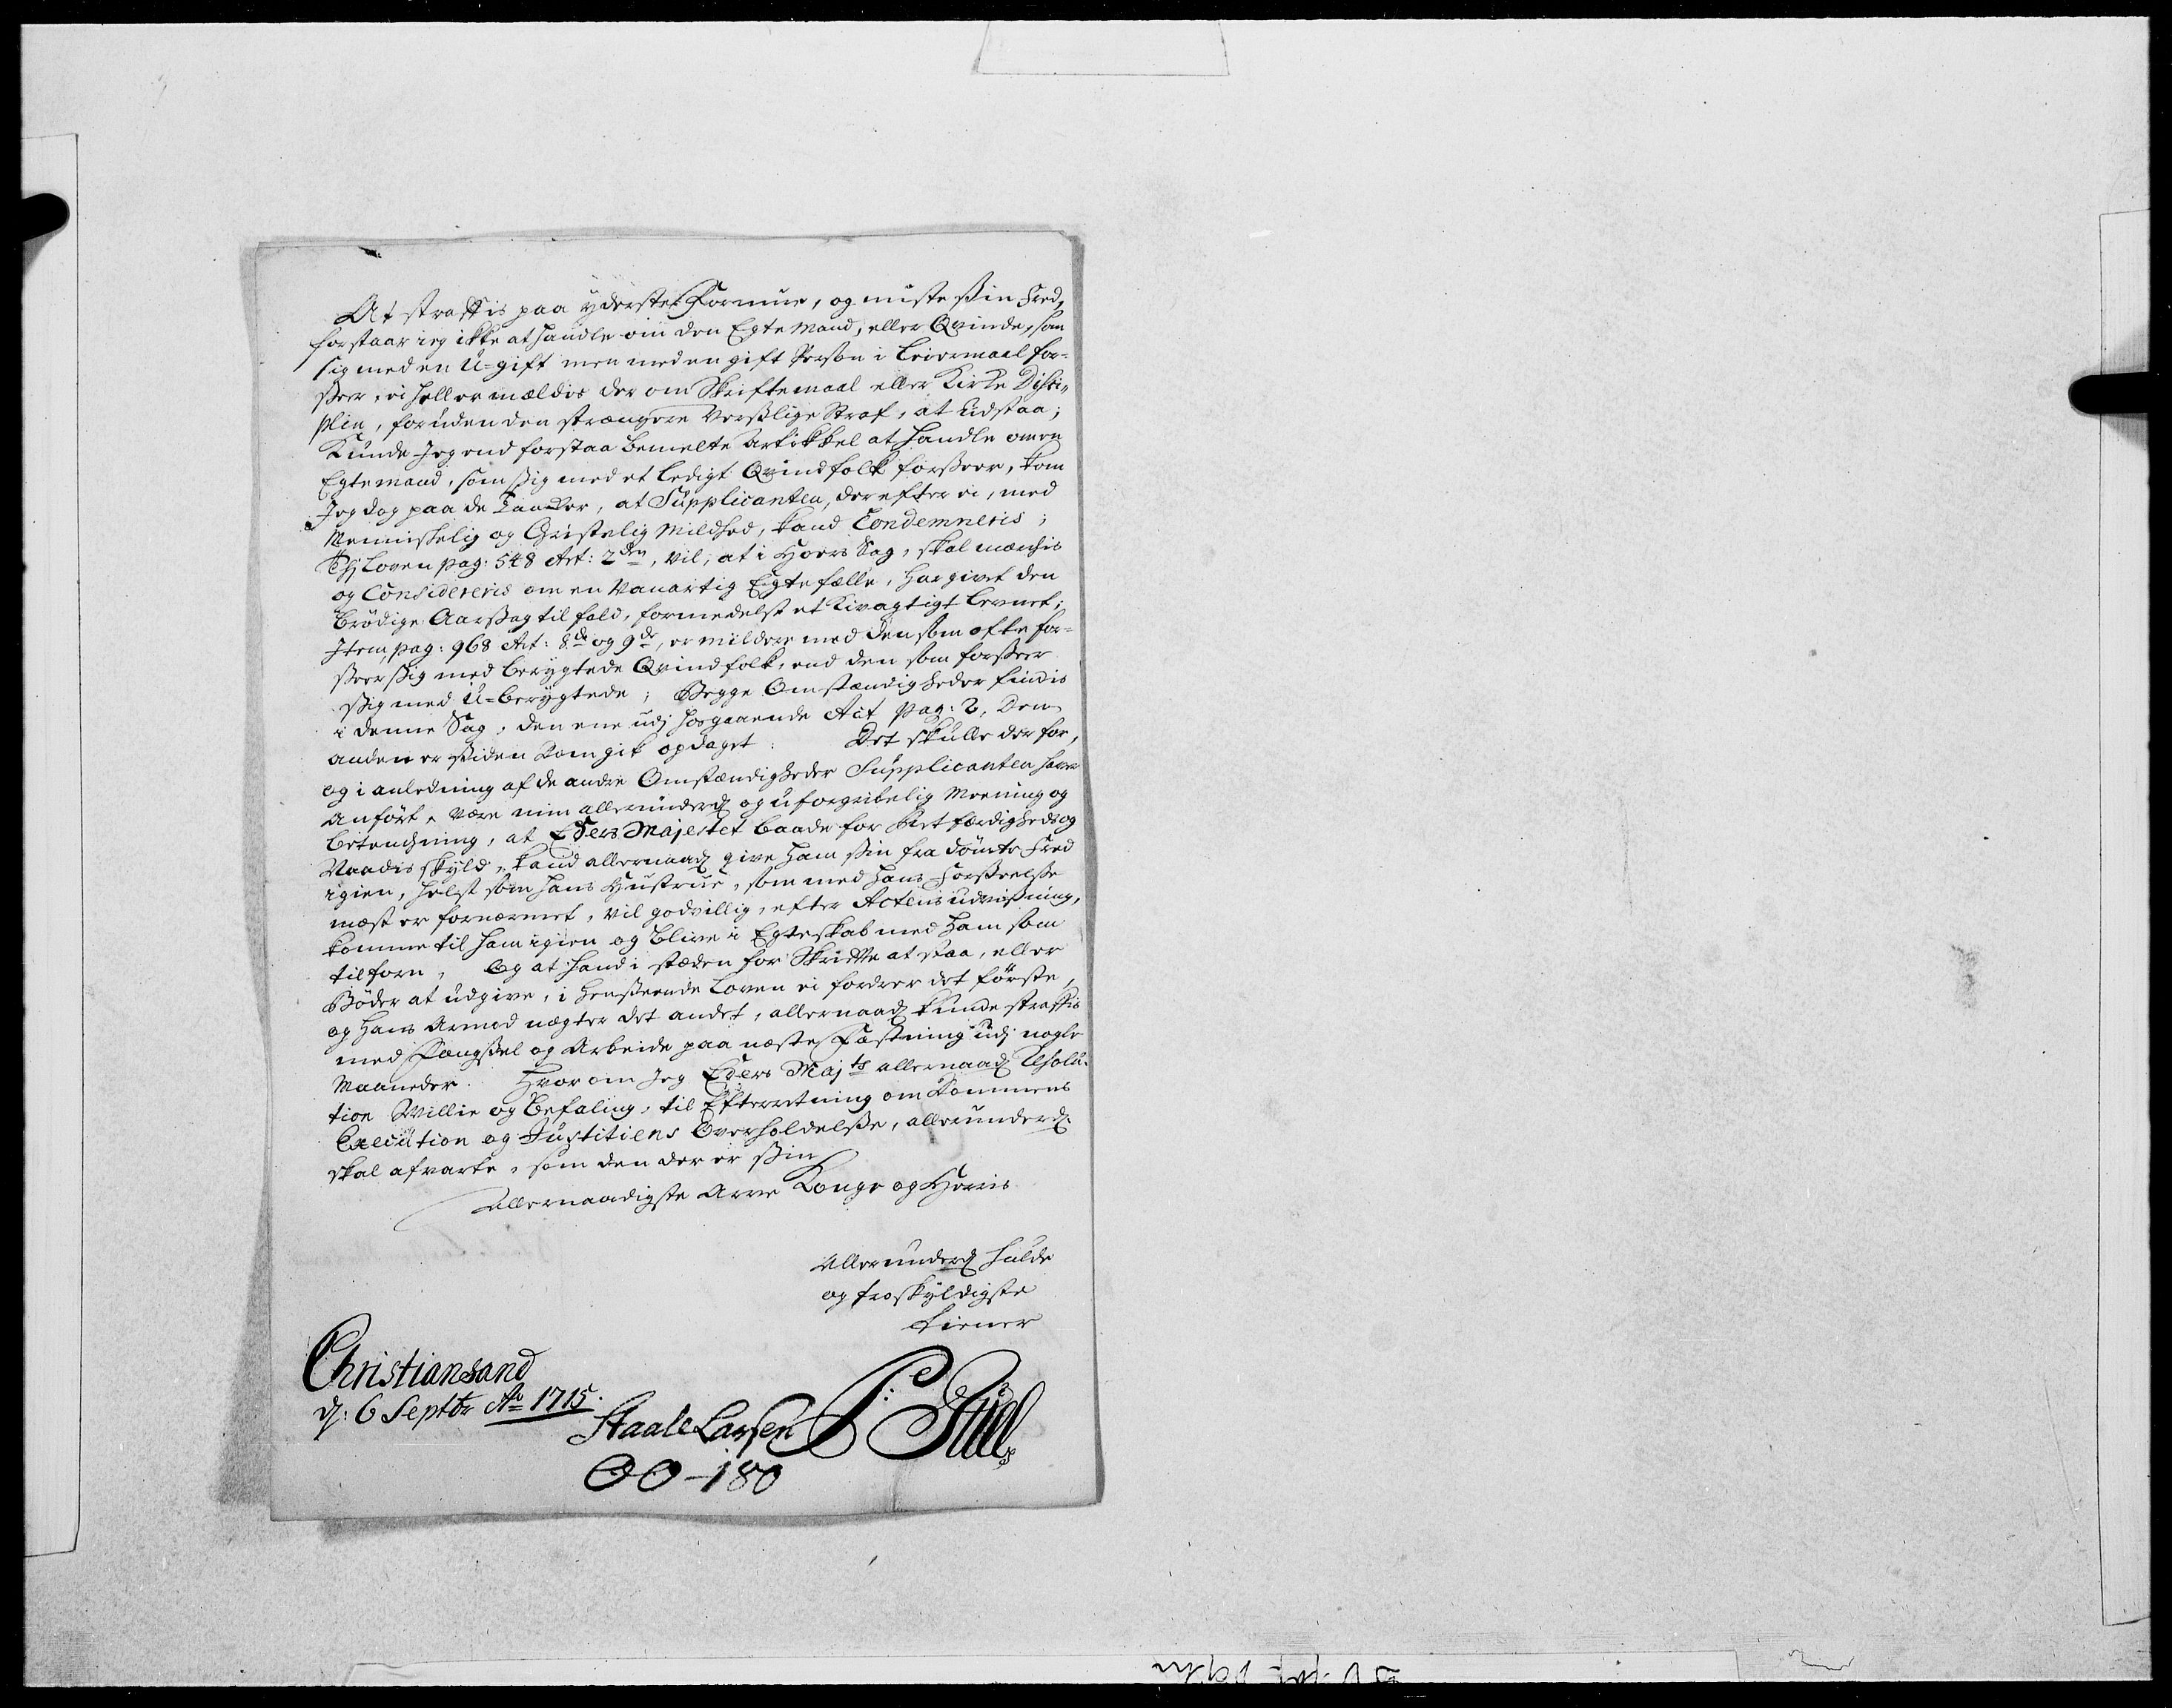 At straffis paa yderste Formue, og miste sin Fred,
forstaar ieg ikke at handle om den Egte Mand, eller Qvinde, som
sig med en U-gift men med en gift Person i Leiermaal for-
seer, ei heller mældes der om Skriftemaal eller Kirke Disci-
plin, foruden den strængere Verslige Straf, at udstaa;
Kunde Jeg end forstaa bemelte Artikkel at handle om en
Egtemand, som sig med et ledigt Qvindfolk forseer, kom
Jeg dog paa de Tanker, at Supplicanten, derefter ei, med
Menniskelig og Christelig Mildhed, kand Condemneris;
Thj Loven pag: 548 Art: 2den, vil, at i Hoers Sag, skal mærkis
og Considereris om en Vanartig Egtefælle, har givet den
brødige Aarsag til fald, formedelst et Kivagtigt Levnet;
Item, pag: 968 Art: 8de og 9de, er mildere med den som ofte for-
seer sig med berygtede Qvindfolk, end den som forseer
sig med U-berygtede; Begge Omstændigheder findis
i denne Sag, den ene udj hosgaaende Act pag: 2, Den
anden er siden Kom gik opdaget: Det skulle der for,
og i anledning af de andre Omstændigheder Supplicanten haver
anført, være min allerunderd: og uforgribelig Meening og
betenchning, at Eders Majestet baade for Retfærdigheds og
Naadis skyld, kand allernaad: give ham sin fra dømte Fred
igien, helst som hans Hustrue, som med hans Forseelse
mæst er fornærmet, vil godvillig, efter Actens udviisning,
komme til ham igien og blive i Egteskab med ham som
tilforn, Og at hand i stæden for Skrifte at staa, eller
Bøder at udgive, i henseende Loven ei fordrer det første,
og Hans Armod nægter det andet, allernaad: kunde straffis
med Fængsel og Arbeide paa næste Fæstning udj nogle
Maaneder. Hvorom Jeg Eders Majts allernaad: Resolu-
tion Willie og Befaling, til Efterretning om Dommens
Execution og Justitiens Overholdelse, allerunderd:
skal afvarte, som den der er sin
Allernaadigste Arve Konge og Herris
Allerunderd: hulde
og troskyldigste
tiener
Christiansand
d: 6 Septbr Ao 1715.
Staale Larsen
OO-180